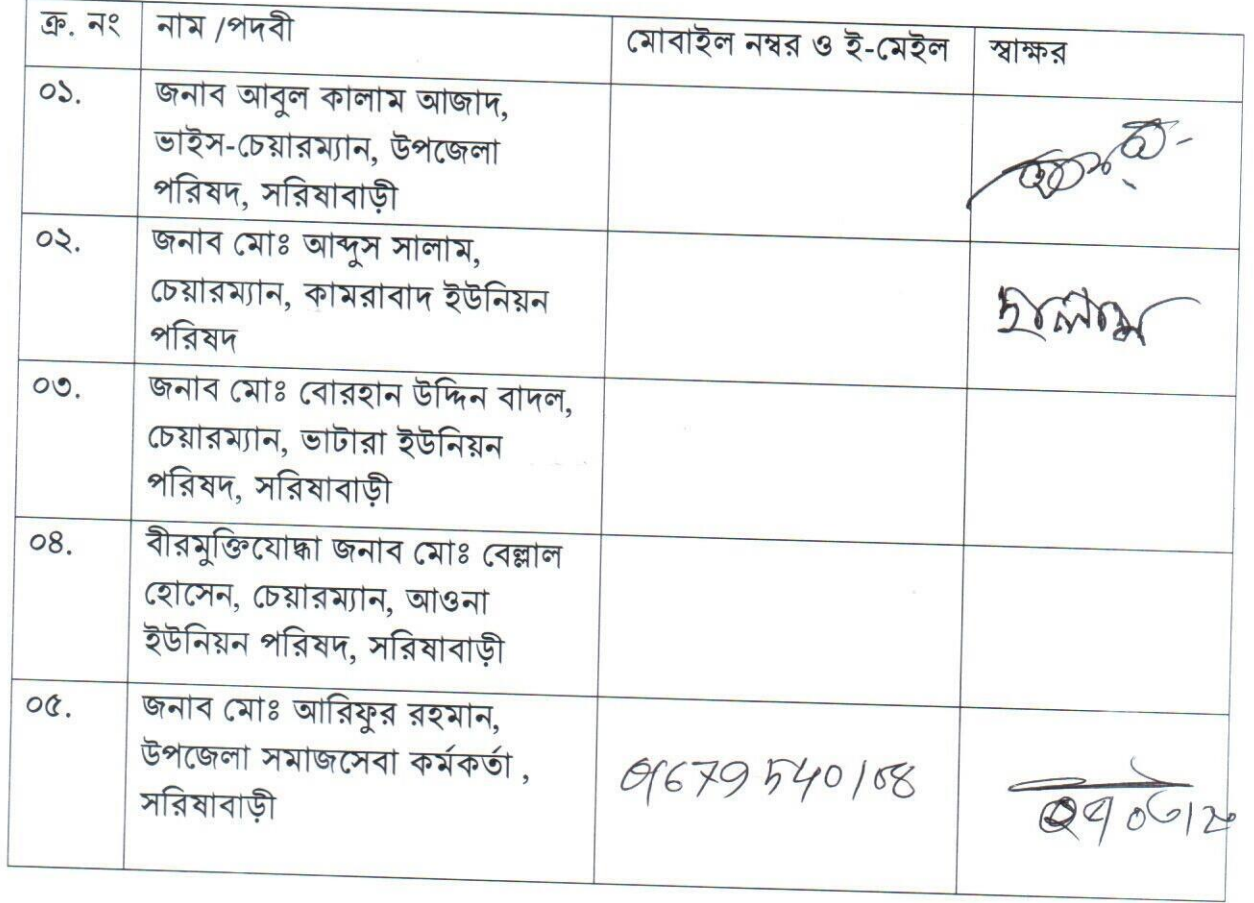 ক্র. নং নাম /পদবী মোবাইল নম্বর ও ই-মেইল স্বাক্ষর
০১. জনাব আবুল কালাম আজাদ,
ভাইস-চেয়ারম্যান, উপজেলা
পরিষদ, সরিষাবাড়ী
০২. জনাব মোঃ আব্দুস সালাম,
চেয়ারম্যান, কামরাবাদ ইউনিয়ন
পরিষদ
০৩. জনাব মোঃ বোরহান উদ্দিন বাদল,
চেয়ারম্যান, ভাটারা ইউনিয়ন
পরিষদ, সরিষাবাড়ী
০৪. বীরমুক্তিযোদ্ধা জনাব মোঃ বেল্লাল
হোসেন, চেয়ারম্যান, আওনা
ইউনিয়ন পরিষদ, সরিষাবাড়ী
০৫. জনাব মোঃ আরিফুর রহমান,
উপজেলা সমাজসেবা কর্মকর্তা ,
সরিষাবাড়ী
01679540108